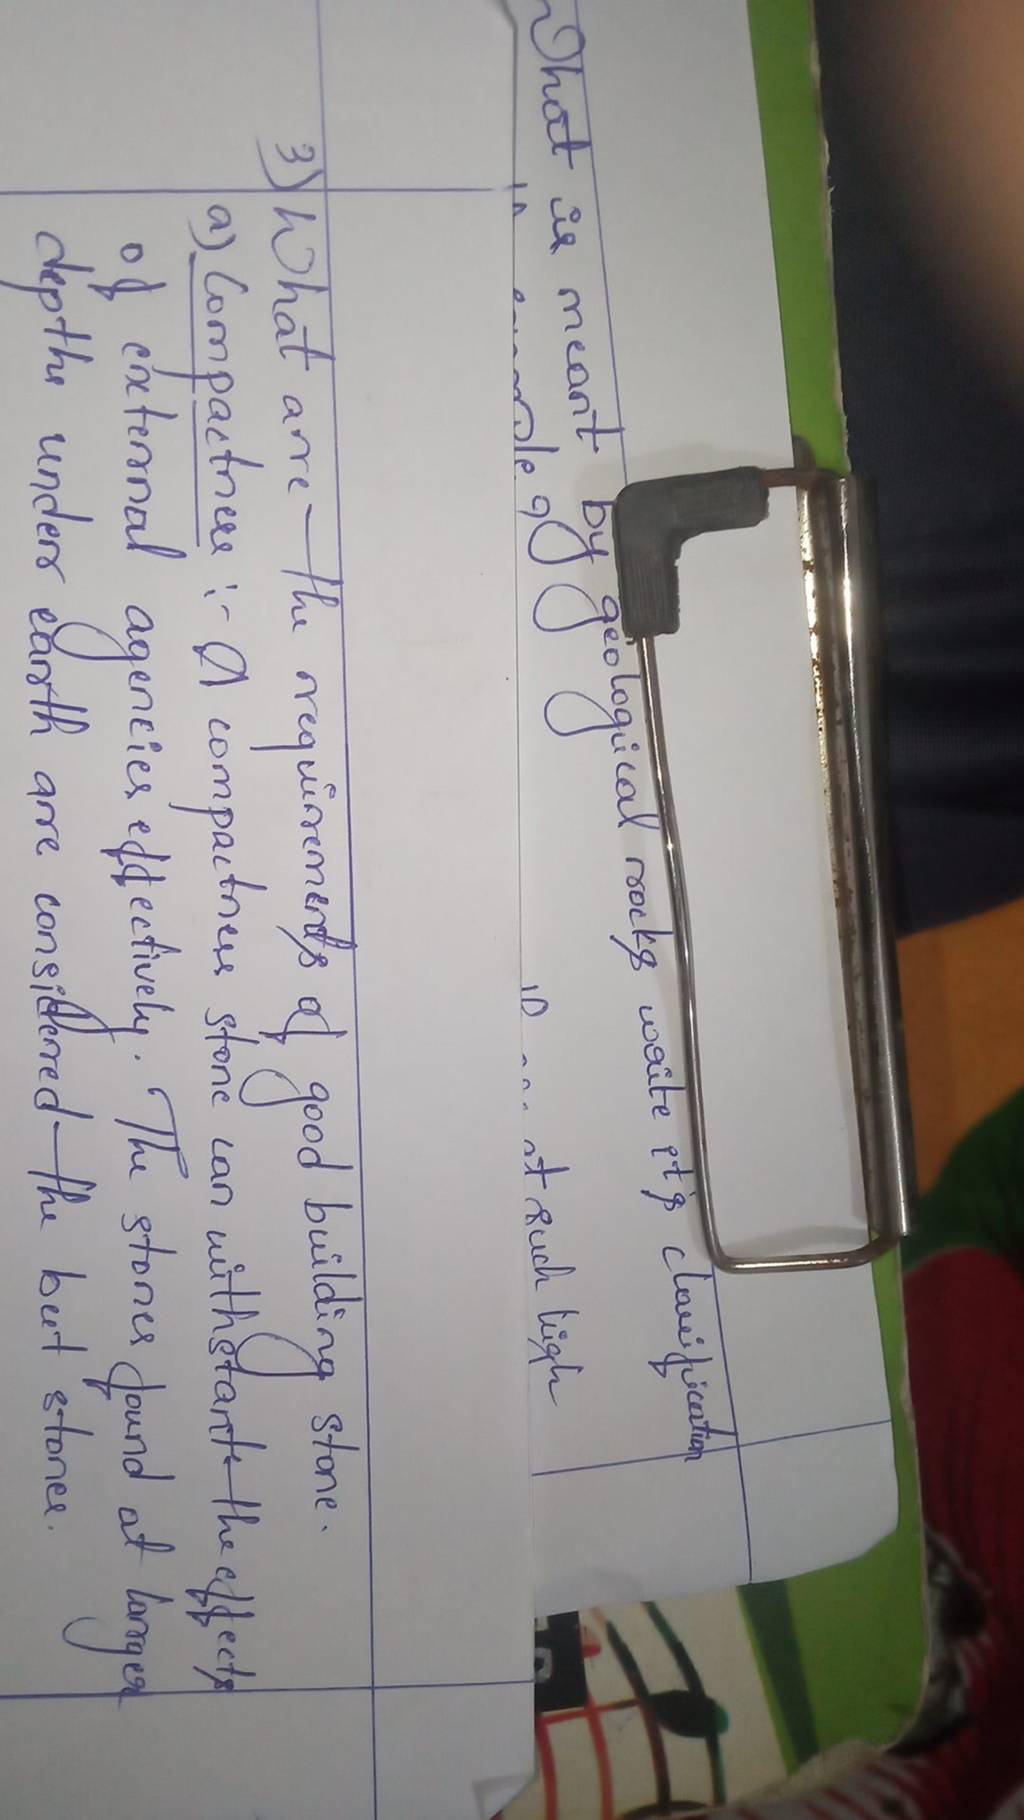 What is meant by geological rocks waite it's classification
such high
3) What are the requirements of good building stone.
a) Compactness :- A compactness stone can withstant the effects
of external agencies effectively. The stones found at larger
depths under earth are considered the but stones.